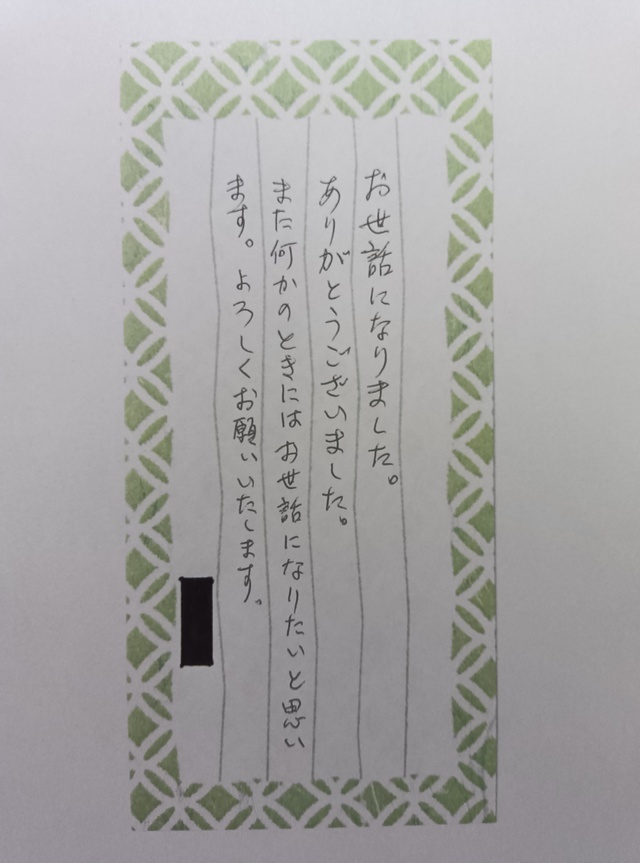 お世話になりました。
ありがとうございました。
また何かのときにはお世話になりたいと思い
ます。よろしくお願いいたします。